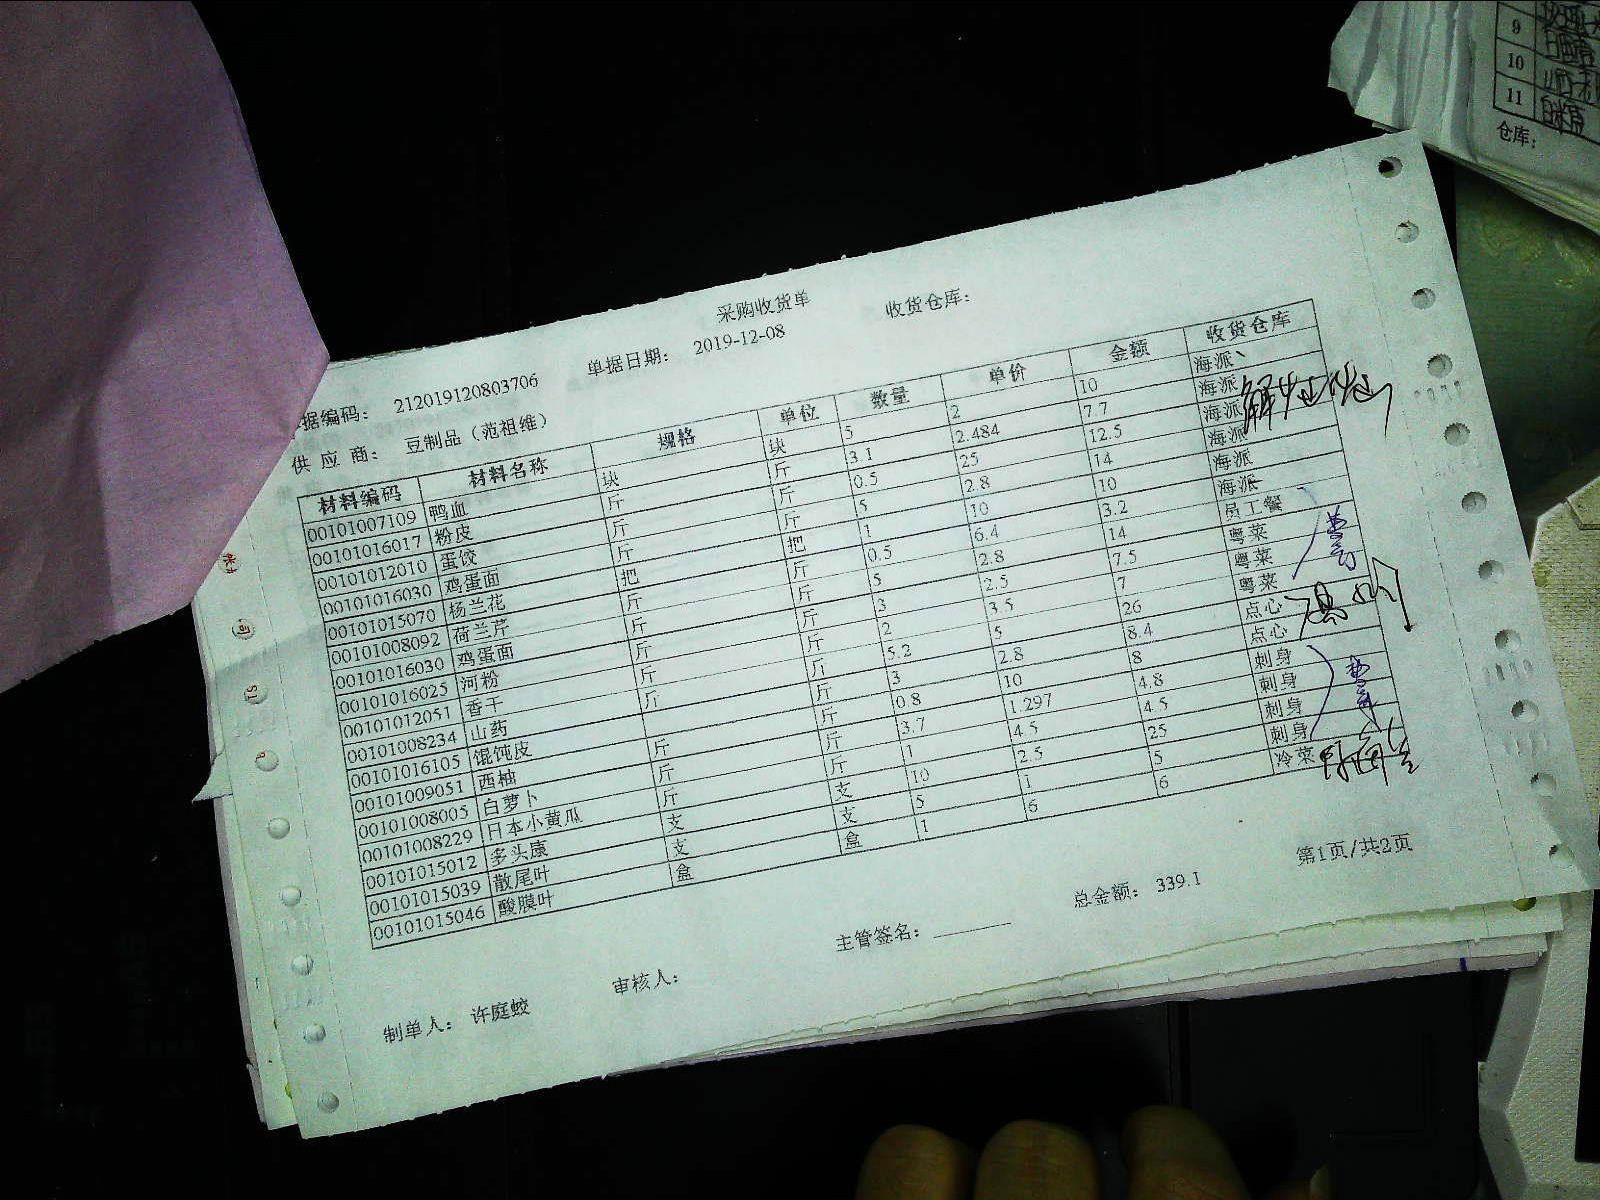 采购收货单
收货仓库：
据编码： 212019120803706 单据日期： 2019-12-08
供 应 商： 豆制品（范祖维）
材料编码 材料名称 规格 单位 数量 单价 金额 收货仓库
00101007109 鸭血 块 块 5 2 10 海派
00101016017 粉皮 斤 斤 3.1 2.484 7.7 海派
00101012010 蛋饺 斤 斤 0.5 25 12.5 海派
00101016030 鸡蛋面 斤 斤 5 2.8 14 海派
00101015070 杨兰花 把 把 1 10 10 海派
00101008092 荷兰芹 斤 斤 0.5 6.4 3.2 海派
00101016030 鸡蛋面 斤 斤 5 2.8 14 员工餐
00101016025 河粉 斤 斤 3 2.5 7.5 粤菜
00101012051 香干 斤 斤 2 3.5 7 粤菜
00101008234 山药 斤 斤 5.2 5 26 粤菜
00101016105 馄饨皮 斤 3 2.8 8.4 点心
00101009051 西柚 斤 斤 0.8 10 8 点心
00101008005 白萝卜 斤 斤 3.7 1.297 4.8 刺身
00101008229 日本小黄瓜 斤 斤 1 4.5 4.5 刺身
00101015012 多头康 支 支 10 2.5 25 刺身
00101015039 散尾叶 支 支 5 1 5 刺身
00101015046 酸膜叶 盒 盒 1 6 6 冷菜
第1页/共2页
总金额： 339.1
主管签名：
审核人：
制单人： 许庭蛟
9
10
11
仓库：